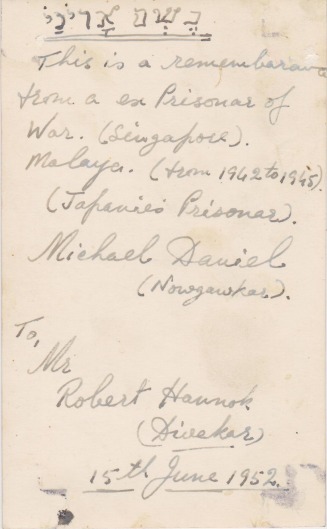 בְּשֵׁם אֲדֹנָי
This is a rememberance
from a ex Prisonar of
War. (Singapore).
Malaya. (from 1942 to 1945).
(Japanies Prisonar).
Michael Daniel
(Nowgawkar).
To,
Mr
Robert Hannok
(Divekar)
15th June 1952.